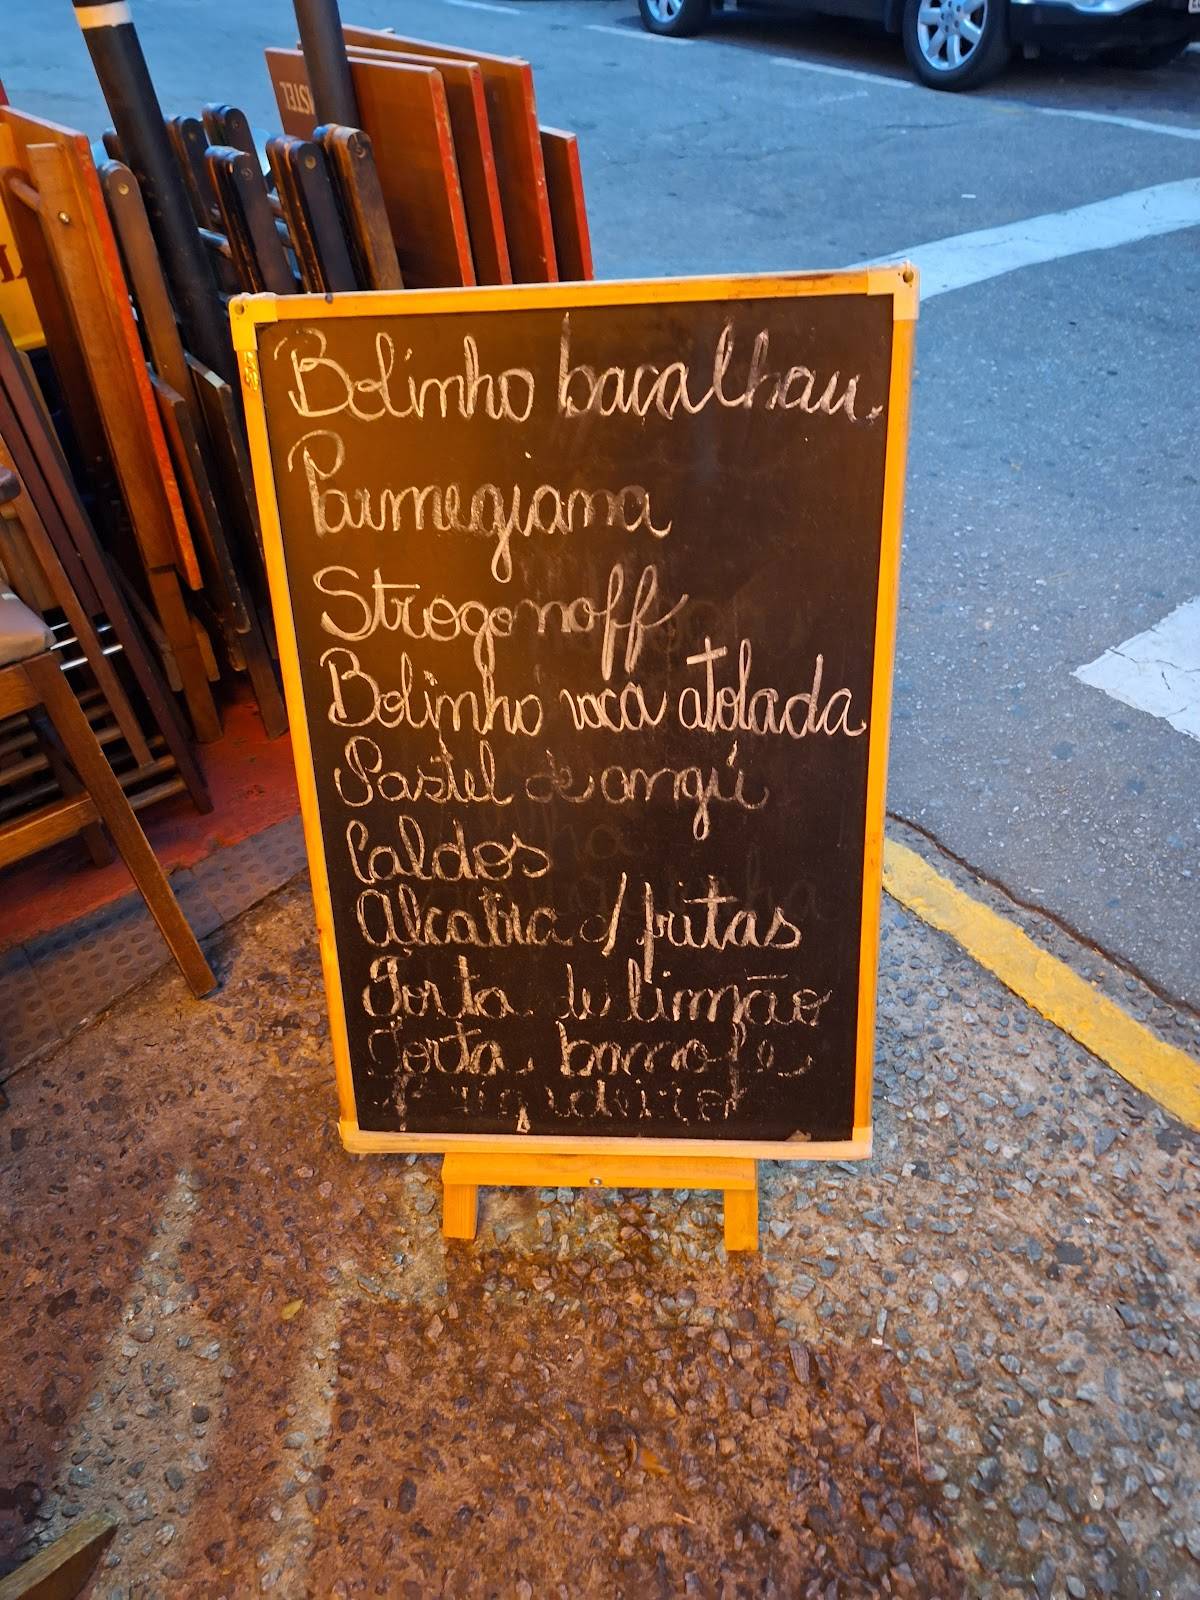 Bolinho bacalhau.
Parmegiana
Strogonoff
Bolinho vaca atolada
Pastel de angú
Caldos
Alcatra c/ fritas
Torta de limão
Torta banofe